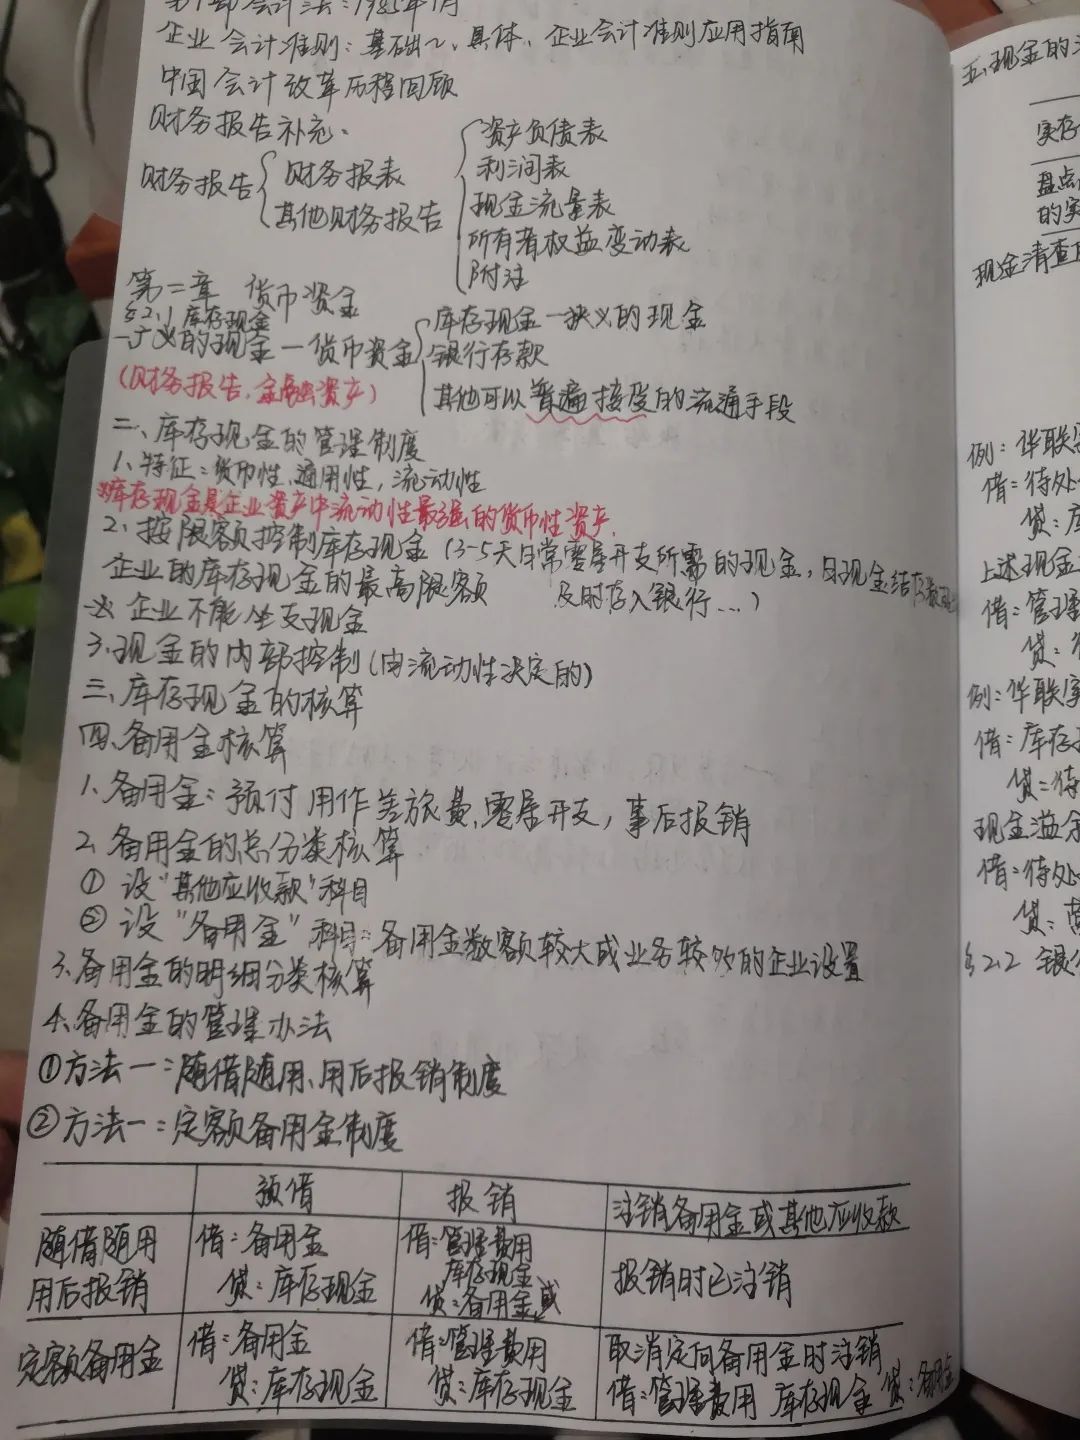 第1部会计法：1985年1月
企业会计准则：基础~、具体、企业会计准则应用指南
中国会计改革历程回顾
财务报告补充：
财务报告
财务报表
其他财务报告
资产负债表
利润表
现金流量表
所有者权益变动表
附注
第二章 货币资金
§2.1 库存现金
一、广义的现金—货币资金
库存现金—狭义的现金
银行存款
其他可以普遍接受的流通手段
(财务报告,金融资产)
二、库存现金的管理制度
1、特征：货币性、通用性，流动性
*库存现金是企业资产中流动性最强的货币性资产.
2、按限额控制库存现金(3-5天日常零星开支所需的现金，日现金结存数
企业的库存现金的最高限额 及时存入银行…)
企业不能坐支现金
3、现金的内部控制(由流动性决定的)
三、库存现金的核算
四、备用金核算
1、备用金：预付用作差旅费、零星开支，事后报销
2、备用金的总分类核算
① 设"其他应收款"科目
② 设"备用金"科目：备用金数额较大或业务较多的企业设置
3、备用金的明细分类核算
4、备用金的管理办法
①方法一：随借随用、用后报销制度
②方法一：定额备用金制度
预借 报销 注销备用金或其他应收款
随借随用
用后报销
借：备用金
贷：库存现金
借：管理费用
库存现金
贷：备用金或
报销时已注销
定额备用金
借：备用金
贷：库存现金
借：管理费用
贷：库存现金
取消定向备用金时注销
借：管理费用 库存现金 贷：备用金
五、现金的
实存
盘点
的实
现金清查
例：华联
借：待处
贷：库
上述现金
借：管理
贷：
例：华联实
借：库存
贷：待
现金溢余
借：待处
贷：营
§2.2 银行